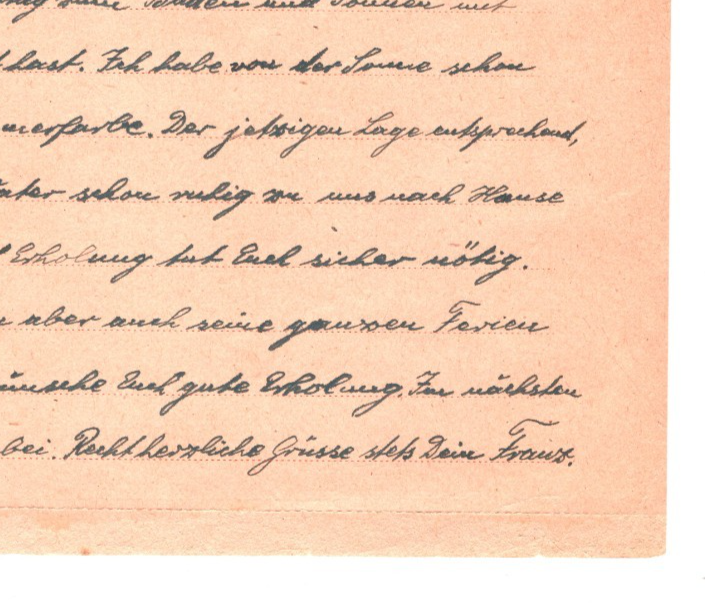 zum Baden und Sonnen mit
hast. Ich habe von der Sonne schon
merfarbe. Der jetzigen Lage entsprechend,
ater schon ruhig zu uns nach Hause
Erholung tut Euch sicher nötig.
aber auch seine ganzen Ferien
ünsche Euch gute Erholung. Im nächsten
bei. Recht herzliche Grüsse stets Dein Franz.